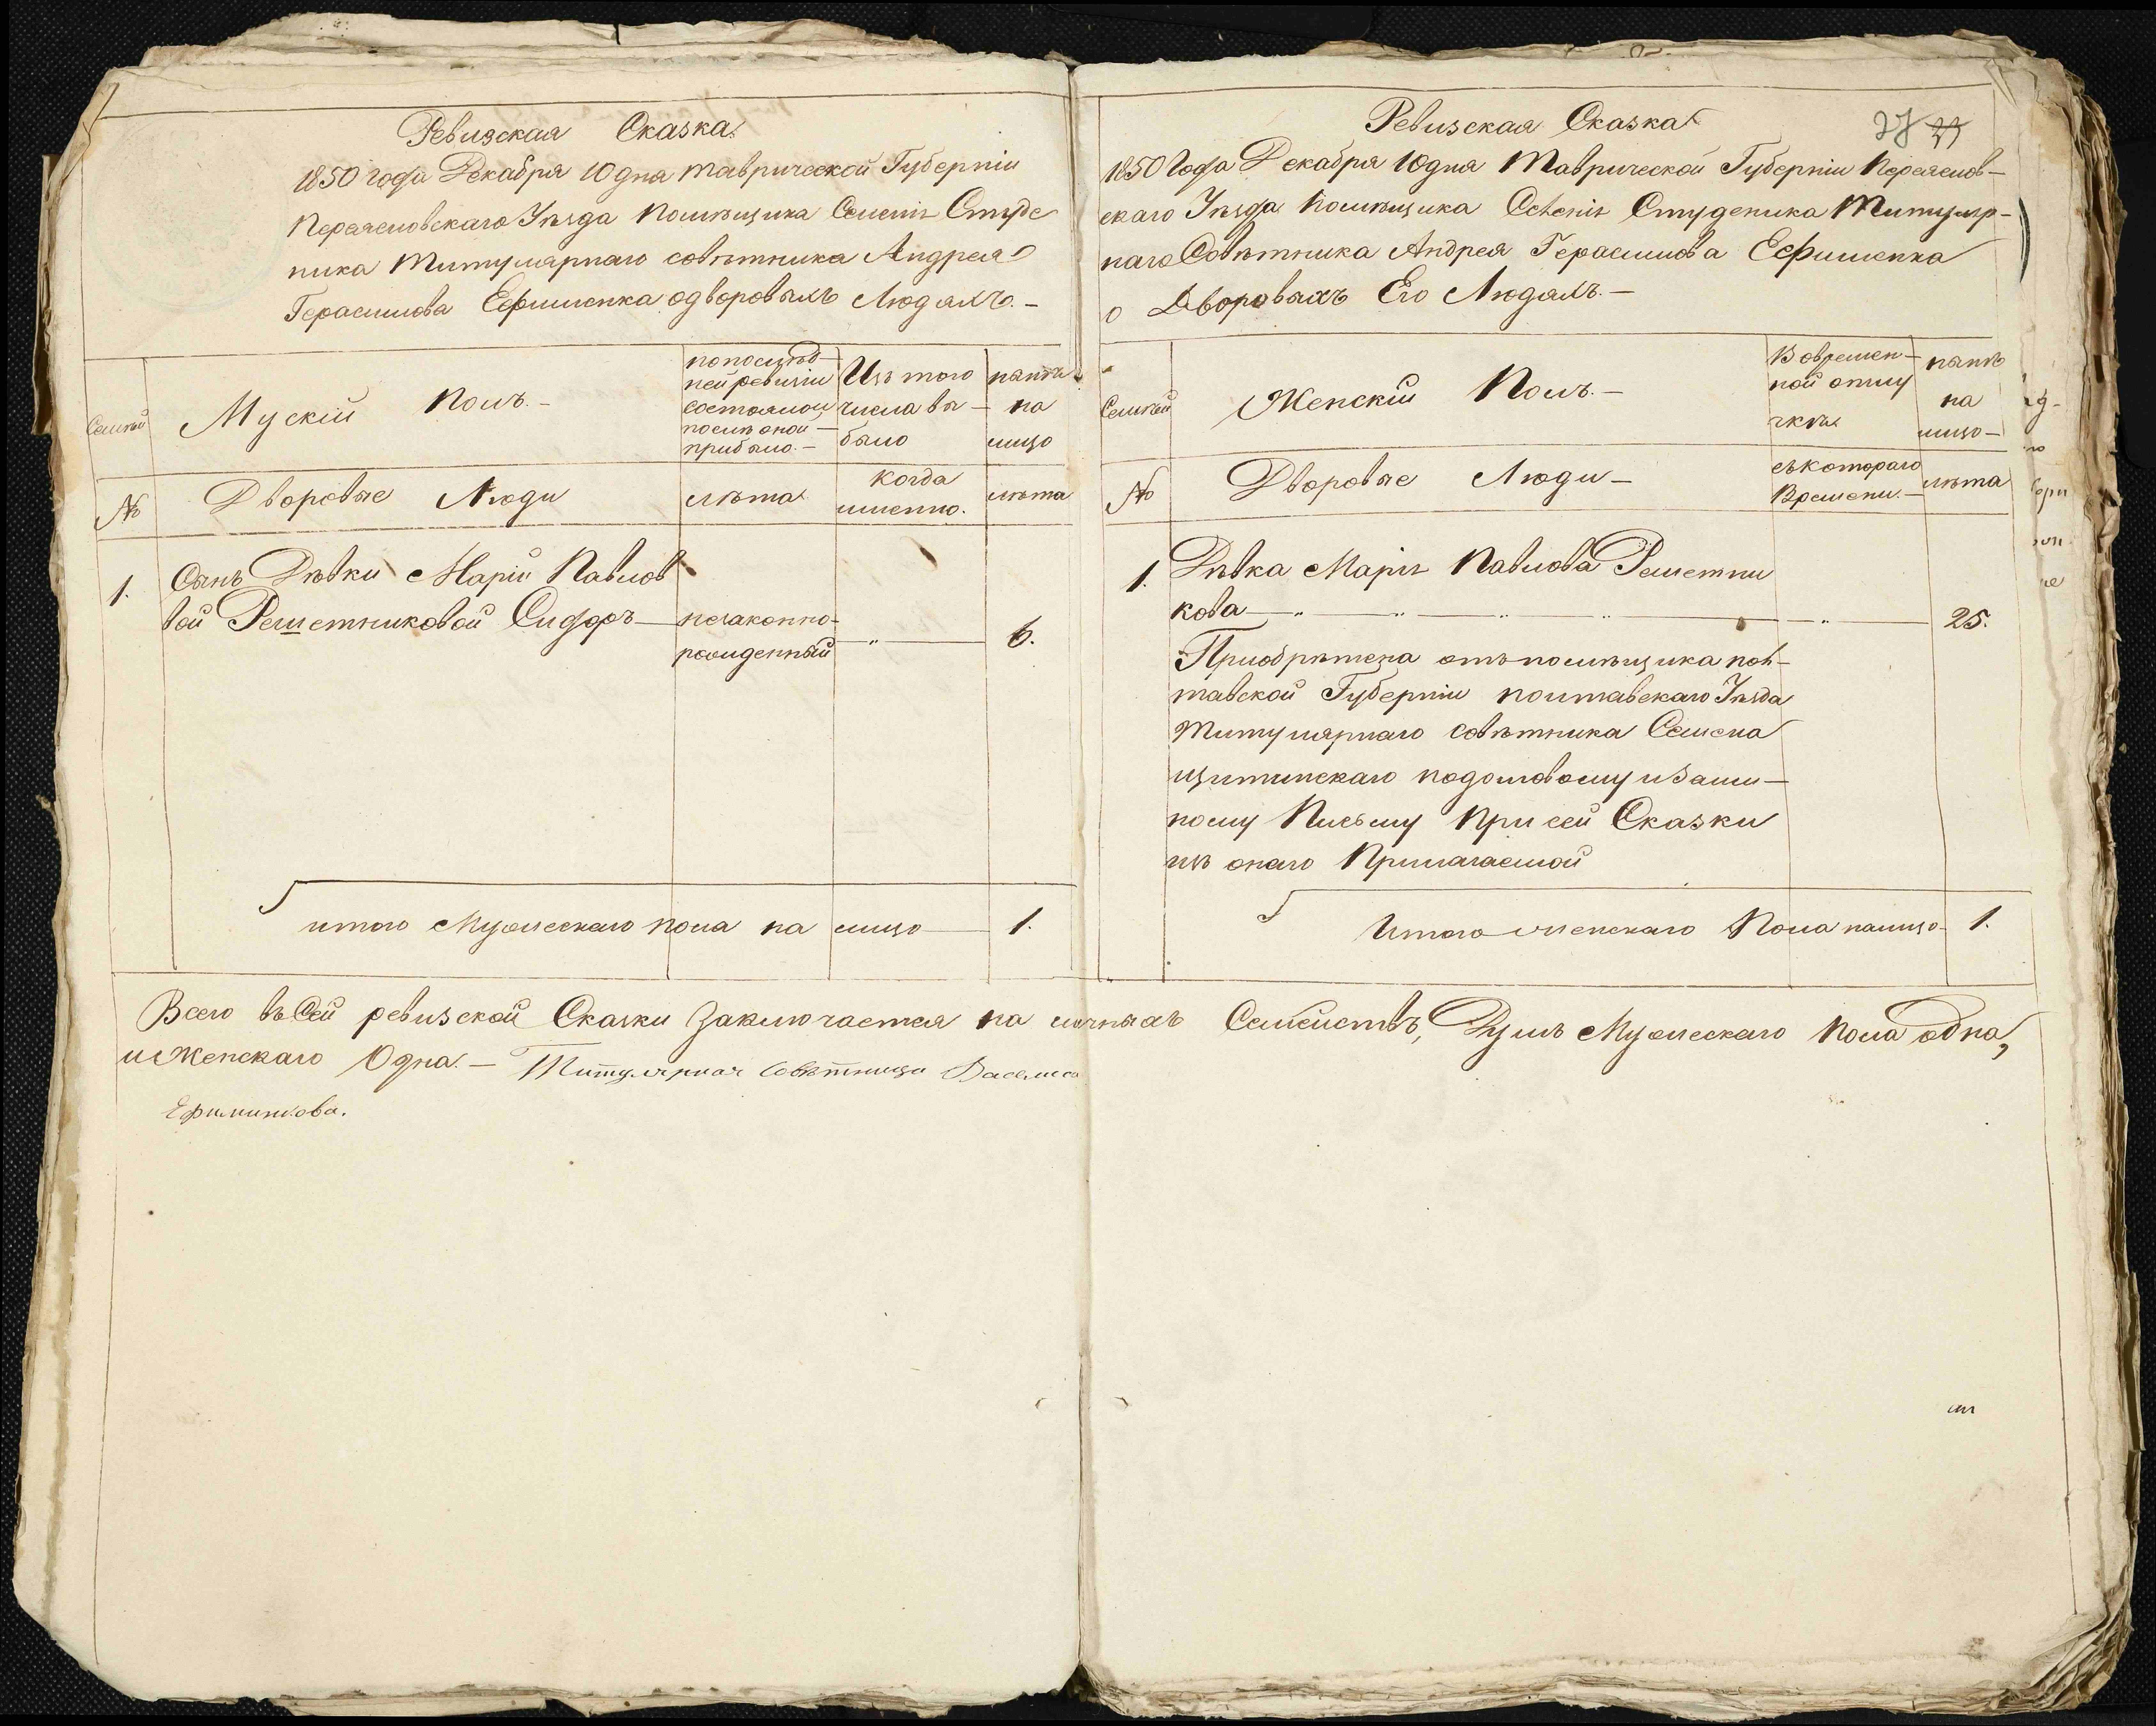 Ревизская Сказка.
1850 года Декабря 10 дня Таврической Губерніи
Перекопскаго Уезда помѣщика Селенія Студе
ника Титулярнаго совѣтника Андрея
Герасимова Ефименка одворовыхъ Людяхъ.—
Семьи
Мускій полъ.—
попослед—
ней ревизіи
состояло и
после оной—
прибыло.—
Изъ того
числа вы—
было
нынѣ
на
лицо
№
Дворовые Люди
лѣта
когда
именно.
лѣта
1. Сынъ Дѣвки Маріи Павлов
вой Решетниковой Сидоръ — незаконно-
рожденный — „ — 6.
итого Мужескаго пола на лицо — 1.
Ревизская Сказка
27 23
1850 Года Декабря 10 дня Таврической Губерніи
скаго Уезда помѣщика Селенія Студеника Титуляр-
наго Совѣтника Андрея Герасимова Ефименка
о Дворовыхъ Его Людяхъ.—
Семьи
Женскій Полъ.—
Вовремен—
ной отлу
чкѣ
нынѣ
на
лицо—
№
Дворовые Люди—
съкотораго
Времени.—
лѣта
1. Дѣвка Марія Павлова Решетни
кова — „ — „ — „ — „ — „ — 25.
Приобрѣтена отъпомѣщика пол—
тавской Губерніи полтавскаго Уезда
Титулярнаго совѣтника Семена
подомовому
ному Письму При сей Сказки
оного Прилагаемой
Итого женскаго Пола налицо- 1.
Всего въ Сей ревизской Сказки Заключается на личныхъ Семействъ, Душъ Мужескаго пола одна,
и Женскаго Одна.— Титулярная Совѣтница Василиса
Ефименкова.